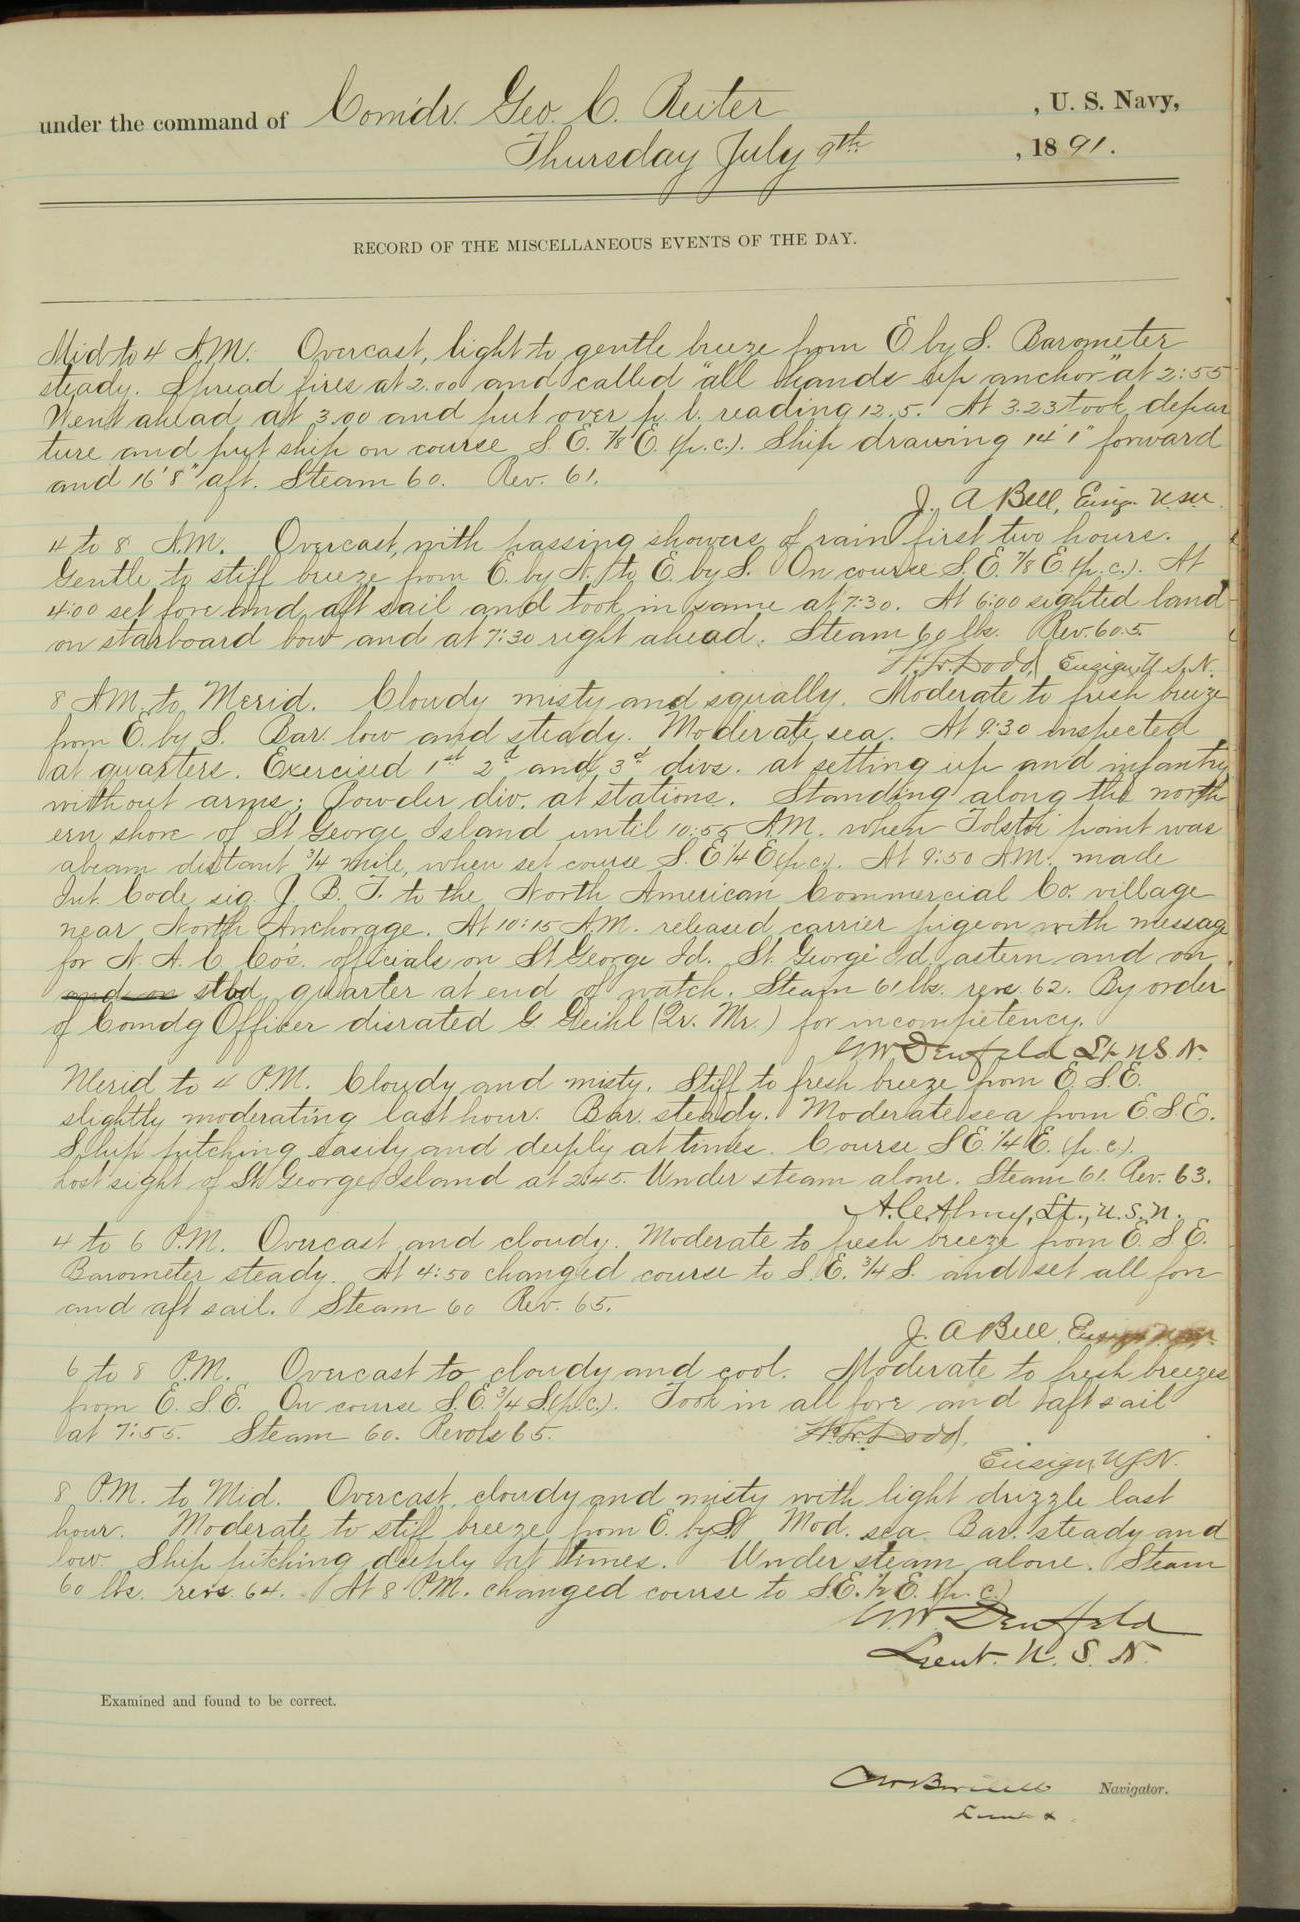 under the command of Com'dr. Geo. C. Reiter , U. S. Navy,
Thursday July 9th , 1891.
RECORD OF THE MISCELLANEOUS EVENTS OF THE DAY.
Mid to 4 A.M. Overcast, light to gentle breeze from E by S. Barometer
steady. Spread fires at 2.00 and called "all hands up anchor" at 2:55
Went ahead at 3.00 and put over p. l. reading 12.5. At 3.23 took depar
ture and put ship on course S. E. 7/8 E. (p.c.). Ship drawing 14' 1" forward
and 16' 8" aft. Steam 60. Rev. 61.
J. A Bell, Ensign USN.
4 to 8 A.M. Overcast, with passing showers of rain first two hours.
Gentle to stiff breeze from E. by N. to E. by S. On course S.E. 7/8 E. (p.c.). At
4:00 set fore and aft sail and took in same at 7:30. At 6:00 sighted land
on starboard bow and at 7:30 right ahead. Steam 60 lbs. Rev. 60.5.
Dodd, Ensign, U.S.N.
8 A.M. to Merid. Cloudy misty and squally. Moderate to fresh breeze
from E. by S. Bar. low and steady. Moderate sea. At 9:30 inspected
at quarters. Exercised 1st 2d and 3d divs. at setting up and infantry
without arms; Powder div. at stations. Standing along the north
ern shore of St George Island until 10:55 A.M. when Tolstoi point was
abeam distant 3/4 mile, when set course S. E 1/4 E (p.c.). At 9:50 A.M. made
Int. Code sig. J. B. T. to the North American Commercial Co. village
near North Anchorage. At 10:15 A.M. released carrier pigeon with message
for N. A. C Co's. officials on St George Id. St. George Id. astern and on
and on stbd quarter at end of watch. Steam 61 lbs. revs. 62. By order
of Comdg Officer disrated G. Deihl (Qr. Mr.) for incompetency.
Denfeld Lt. U.S.N.
Merid to 4 P.M. Cloudy and misty. Stiff to fresh breeze from E. S.E.
slightly moderating last hour. Bar. steady. Moderate sea from E S.E.
Ship pitching easily and deeply at times. Course S E. 1/4 E. (p.c.).
Lost sight of St George Island at 2:45. Under steam alone. Steam 61. Rev. 63.
A. C. Almy, Lt., U.S.N.
4 to 6 P.M. Overcast and cloudy. Moderate to fresh breeze from E. S E.
Barometer steady. At 4:50 changed course to S. E. 3/4 S. and set all fore
and aft sail. Steam 60 Rev. 65.
J. A Bell, Ensign
6 to 8 P.M. Overcast to cloudy and cool. Moderate to fresh breezes
from E. S.E. On course S.E. 3/4 S (p.c.). Took in all fore and aft sail
at 7:55. Steam 60. Revols 65.
Dodd,
Ensign, U.S.N.
8 P.M. to Mid. Overcast, cloudy and misty with light drizzle last
hour. Moderate to stiff breeze from E. by S. Mod. sea Bar. steady and
low. Ship pitching deeply at times. Under steam alone. Steam
60 lbs. revs. 64. At 8 P.M. changed course to S.E. 1/2 E. (p.c.)
Denfeld
Lieut. U. S. N.
Examined and found to be correct.
Navigator.